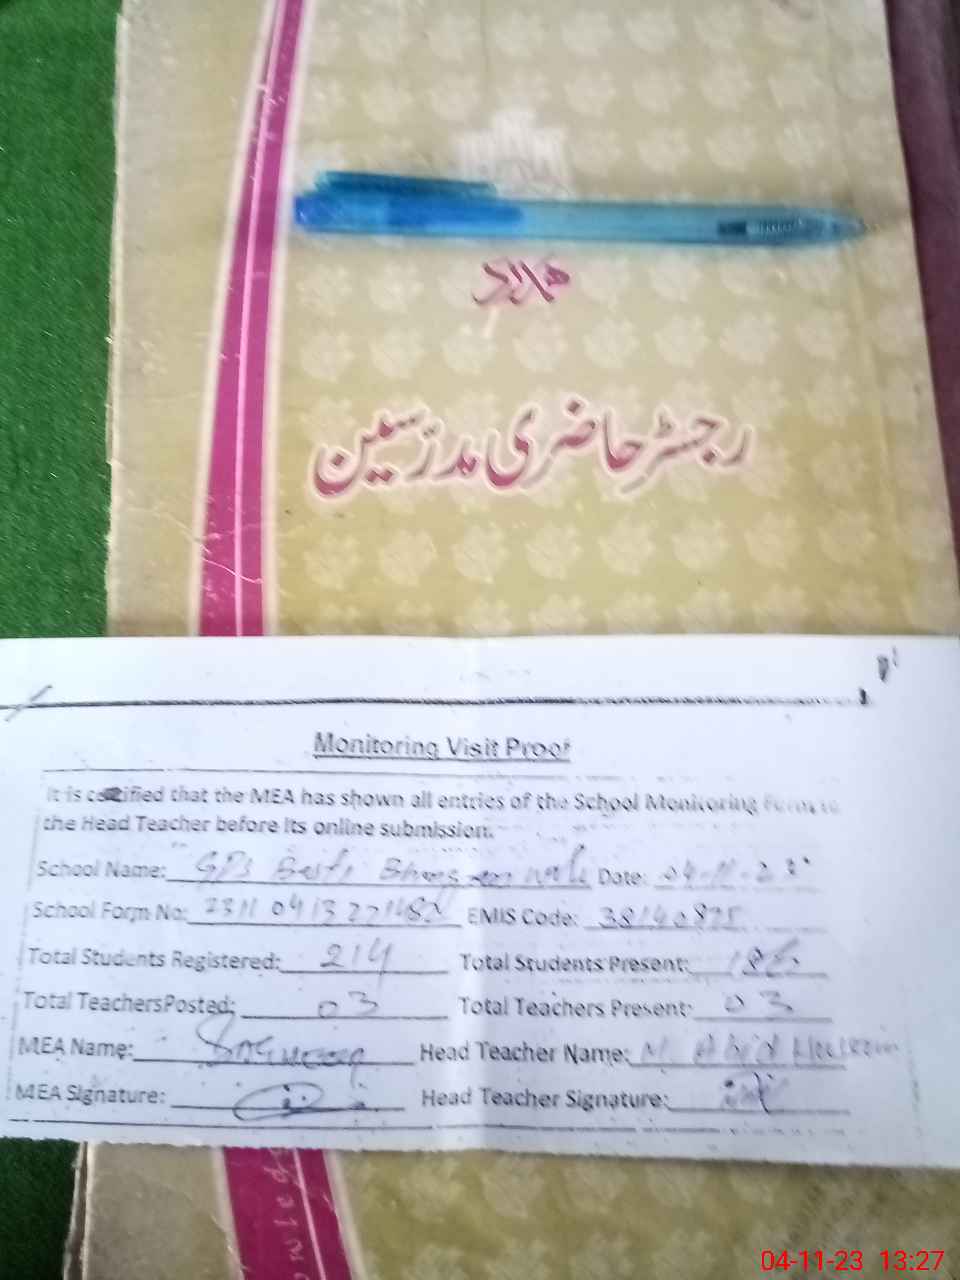 ھمداد
رجسٹر حاضری مدرّسین
Monitoring Visit Proof
It is certified that the MEA has shown all entries of the School Monitoring Form to
the Head Teacher before its online submission.
School Name: GPS Basti Date: 04-11-23
School Form No: EMIS Code: 38140875
Total Students Registered: 214 Total Students Present: 186
Total TeachersPosted: 03 Total Teachers Present: 03
MEA Name: Head Teacher Name: M. Abid
MEA Signature: Head Teacher Signature:
04-11-23 13:27